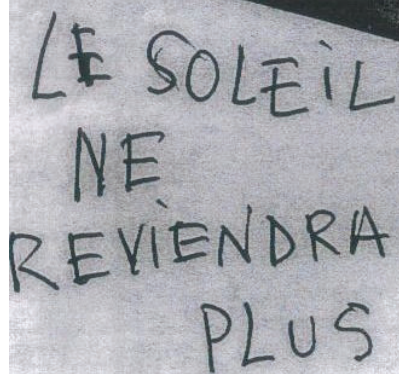 LE SOLEIL
NE
REVIENDRA
PLUS